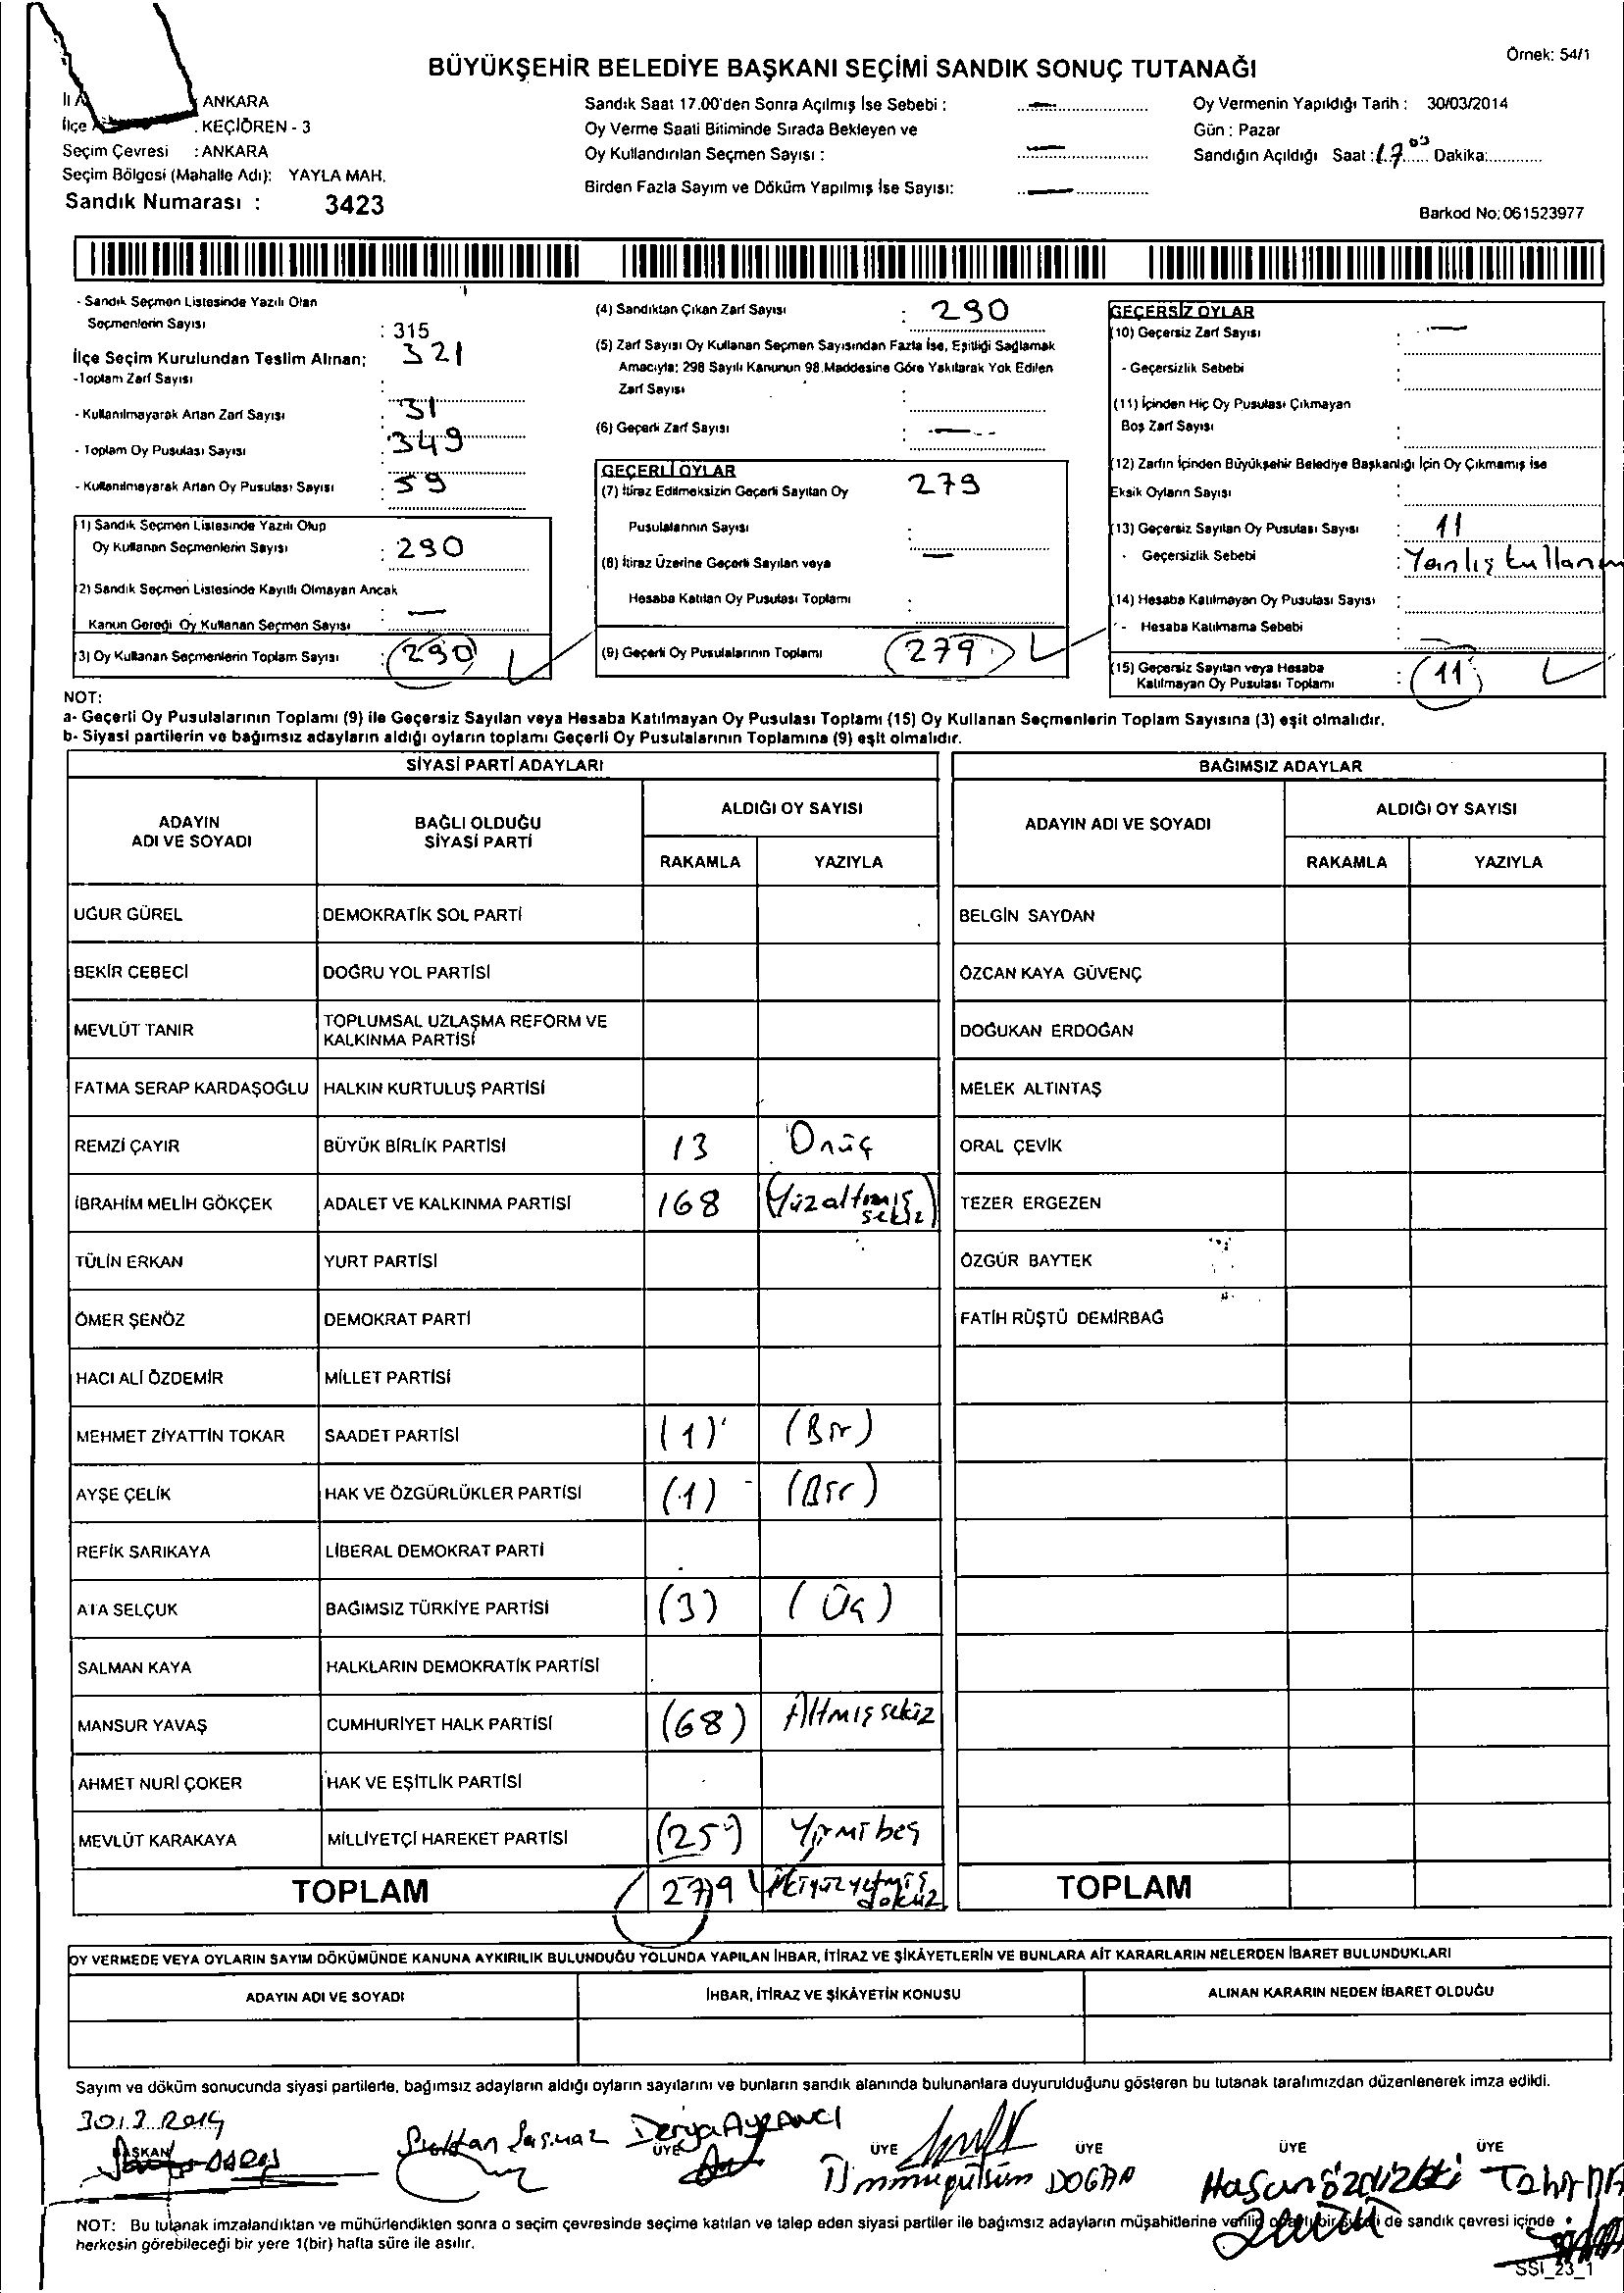 Örnek: 54/1
BÜYÜKŞEHİR BELEDİYE BAŞKANI SEÇİMİ SANDIK SONUÇ TUTANAĞI
: ANKARA
İlçe : KEÇİÖREN - 3
Seçim Çevresi : ANKARA
Seçim Bölgesi (Mahalle Adı): YAYLA MAH.
Sandık Numarası : 3423
Sandık Saat 17.00'den Sonra Açılmış İse Sebebi : —
Oy Verme Saati Bitiminde Sırada Bekleyen ve
Oy Kullandırılan Seçmen Sayısı : —
Birden Fazla Sayım ve Döküm Yapılmış İse Sayısı: —
Oy Vermenin Yapıldığı Tarih : 30/03/2014
Gün : Pazar
Sandığın Açıldığı Saat : 17 00 Dakika:
Barkod No: 061523977
- Sandık Seçmen Listesinde Yazılı Olan
Seçmenlerin Sayısı : 315
İlçe Seçim Kurulundan Teslim Alınan: 321
-Toplam Zarf Sayısı :
- Kullanılmayarak Artan Zarf Sayısı : 31
- Toplam Oy Pusulası Sayısı : 349
- Kullanılmayarak Artan Oy Pusulası Sayısı : 59
1) Sandık Seçmen Listesinde Yazılı Olup
Oy Kullanan Seçmenlerin Sayısı : 290
2) Sandık Seçmen Listesinde Kayıtlı Olmayan Ancak
Kanun Gereği Oy Kullanan Seçmen Sayısı : —
3) Oy Kullanan Seçmenlerin Toplam Sayısı : 290
(4) Sandıktan Çıkan Zarf Sayısı : 290
(5) Zarf Sayısı Oy Kullanan Seçmen Sayısından Fazla İse, Eşitliği Sağlamak
Amacıyla; 298 Sayılı Kanunun 98.Maddesine Göre Yakılarak Yok Edilen
Zarf Sayısı :
(6) Geçerli Zarf Sayısı : —
GEÇERLİ OYLAR
(7) İtiraz Edilmeksizin Geçerli Sayılan Oy 279
Pusulalarının Sayısı :
(8) İtiraz Üzerine Geçerli Sayılan veya —
Hesaba Katılan Oy Pusulası Toplamı :
(9) Geçerli Oy Pusulalarının Toplamı 279
GEÇERSİZ OYLAR
(10) Geçersiz Zarf Sayısı : —
- Geçersizlik Sebebi :
(11) İçinden Hiç Oy Pusulası Çıkmayan
Boş Zarf Sayısı :
(12) Zarfın İçinden Büyükşehir Belediye Başkanlığı İçin Oy Çıkmamış İse
Eksik Oyların Sayısı :
(13) Geçersiz Sayılan Oy Pusulası Sayısı : 11
- Geçersizlik Sebebi : Yanlış kullanım
(14) Hesaba Katılmayan Oy Pusulası Sayısı :
- Hesaba Katılmama Sebebi : —
(15) Geçersiz Sayılan veya Hesaba
Katılmayan Oy Pusulası Toplamı : 11
NOT:
a- Geçerli Oy Pusulalarının Toplamı (9) ile Geçersiz Sayılan veya Hesaba Katılmayan Oy Pusulası Toplamı (15) Oy Kullanan Seçmenlerin Toplam Sayısına (3) eşit olmalıdır.
b- Siyasi partilerin ve bağımsız adayların aldığı oyların toplamı Geçerli Oy Pusulalarının Toplamına (9) eşit olmalıdır.
SİYASİ PARTİ ADAYLARI BAĞIMSIZ ADAYLAR
ADAYIN ADI VE SOYADI BAĞLI OLDUĞU SİYASİ PARTİ ALDIĞI OY SAYISI ADAYIN ADI VE SOYADI ALDIĞI OY SAYISI
RAKAMLA YAZIYLA RAKAMLA YAZIYLA
UĞUR GÜREL DEMOKRATİK SOL PARTİ BELGİN SAYDAN
BEKİR CEBECİ DOĞRU YOL PARTİSİ ÖZCAN KAYA GÜVENÇ
MEVLÜT TANIR TOPLUMSAL UZLAŞMA REFORM VE KALKINMA PARTİSİ DOĞUKAN ERDOĞAN
FATMA SERAP KARDAŞOĞLU HALKIN KURTULUŞ PARTİSİ MELEK ALTINTAŞ
REMZİ ÇAYIR BÜYÜK BİRLİK PARTİSİ 13 Onüç ORAL ÇEVİK
İBRAHİM MELİH GÖKÇEK ADALET VE KALKINMA PARTİSİ 168 (Yüzaltmış sekiz) TEZER ERGEZEN
TÜLİN ERKAN YURT PARTİSİ ÖZGÜR BAYTEK
ÖMER ŞENÖZ DEMOKRAT PARTİ FATİH RÜŞTÜ DEMİRBAĞ
HACI ALİ ÖZDEMİR MİLLET PARTİSİ
MEHMET ZİYATTİN TOKAR SAADET PARTİSİ (1) (Bir)
AYŞE ÇELİK HAK VE ÖZGÜRLÜKLER PARTİSİ (1) (Bir)
REFİK SARIKAYA LİBERAL DEMOKRAT PARTİ
ATA SELÇUK BAĞIMSIZ TÜRKİYE PARTİSİ (3) (Üç)
SALMAN KAYA HALKLARIN DEMOKRATİK PARTİSİ
MANSUR YAVAŞ CUMHURİYET HALK PARTİSİ (68) Altmışsekiz
AHMET NURİ ÇOKER HAK VE EŞİTLİK PARTİSİ
MEVLÜT KARAKAYA MİLLİYETÇİ HAREKET PARTİSİ (25) Yirmibeş
TOPLAM 279 İkiyüzyetmiş dokuz TOPLAM
OY VERMEDE VEYA OYLARIN SAYIM DÖKÜMÜNDE KANUNA AYKIRILIK BULUNDUĞU YOLUNDA YAPILAN İHBAR, İTİRAZ VE ŞİKÂYETLERİN VE BUNLARA AİT KARARLARIN NELERDEN İBARET BULUNDUKLARI
ADAYIN ADI VE SOYADI İHBAR, İTİRAZ VE ŞİKÂYETİN KONUSU ALINAN KARARIN NEDEN İBARET OLDUĞU
Sayım ve döküm sonucunda siyasi partilerle, bağımsız adayların aldığı oyların sayılarını ve bunların sandık alanında bulunanlara duyurulduğunu gösteren bu tutanak tarafımızdan düzenlenerek imza edildi.
30.3.2014
BAŞKAN ÜYE ÜYE ÜYE ÜYE ÜYE
Derya Ayrancı
Ümmügülsüm DOĞAN
NOT: Bu tutanak imzalandıktan ve mühürlendikten sonra o seçim çevresinde seçime katılan ve talep eden siyasi partiler ile bağımsız adayların müşahitlerine verilir de sandık çevresi içinde
herkesin görebileceği bir yere 1(bir) hafta süre ile asılır.
SSI_23_1